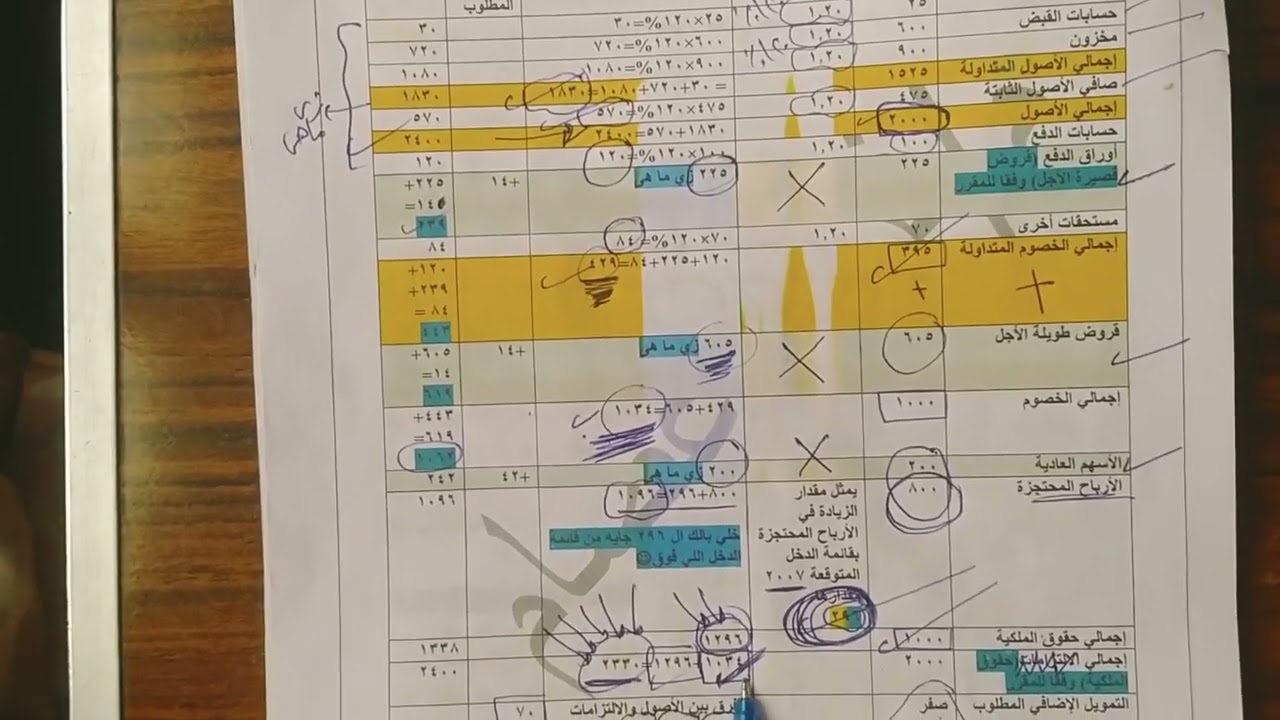 المطلوب
٢٥
١,٢٠
%١٢٠×٢٥=٣٠
٣٠
حسابات القبض
٦٠٠
١,٢٠
%١٢٠×٦٠٠=٧٢٠
٧٢٠
مخزون
٩٠٠
١,٢٠
%١٢٠×٩٠٠=١٠٨٠
١٠٨٠
إجمالي الأصول المتداولة
١٥٢٥
= ٣٠+٧٢٠+١٠٨٠=١٨٣٠
١٨٣٠
صافي الأصول الثابتة
٤٧٥
١,٢٠
%١٢٠×٤٧٥=٥٧٠
٥٧٠
إجمالي الأصول
٢٠٠٠
١٨٣٠+٥٧٠=٢٤٠٠
٢٤٠٠
حسابات الدفع
١٠٠
١,٢٠
%١٢٠×١٠٠=١٢٠
١٢٠
أوراق الدفع (قروض
قصيرة الأجل) وفقا للمقرر
٢٢٥
٢٢٥ زي ما هي
+١٤
٢٢٥+
١٤=
٢٣٩
مستحقات أخرى
٧٠
١,٢٠
%١٢٠×٧٠=٨٤
٨٤
إجمالي الخصوم المتداولة
٣٩٥
١٢٠+٢٢٥+٨٤=٤٢٩
١٢٠+
٢٣٩+
٨٤ =
٤٤٣
قروض طويلة الأجل
٦٠٥
٦٠٥ زي ما هي
+١٤
٦٠٥+
١٤=
٦١٩
إجمالي الخصوم
١٠٠٠
٤٢٩+٦٠٥=١٠٣٤
٤٤٣+
٦١٩=
١٠٦٢
الأسهم العادية
٢٠٠
٢٠٠ زي ما هي
+٤٢
٢٤٢
الأرباح المحتجزة
٨٠٠
يمثل مقدار
الزيادة في
الأرباح المحتجزة
بقائمة الدخل
المتوقعة ٢٠٠٧
٨٠٠+٢٩٦=١٠٩٦
خلي بالك ال ٢٩٦ جايه من قائمة
الدخل اللي فوق☺
١٠٩٦
إجمالي حقوق الملكية
١٠٠٠
١٢٩٦
١٣٣٨
إجمالي
ملكية) وفقا للمقرر
٢٠٠٠
١٠٣٤+١٢٩٦=٢٣٣٠
٢٤٠٠
التمويل الإضافي المطلوب
صفر
فرق بين الأصول والالتزامات
٧٠